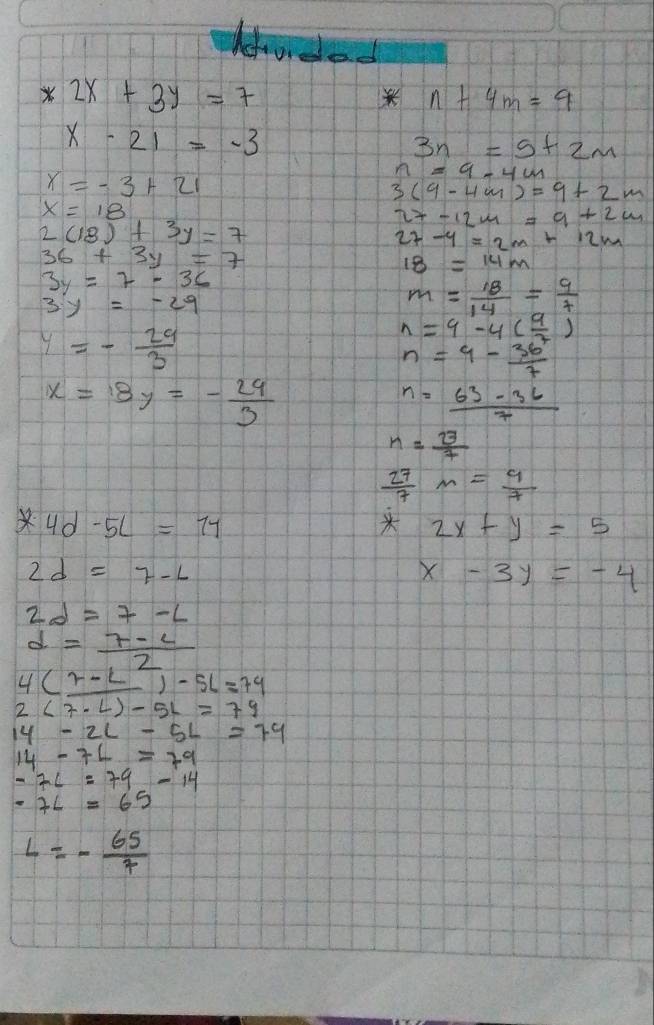 Actividad
* 2x + 3y = 7
x - 21 = -3
x = -3 + 21
x = 18
2(18) + 3y = 7
36 + 3y = 7
3y = 7 - 36
3y = -29
y = - 29/3
x = 18 y = - 29/3
* n + 4m = 9
3n = 9 + 2m
n = 9 - 4m
3(9 - 4m) = 9 + 2m
27 - 12m = 9 + 2m
27 - 9 = 2m + 12m
18 = 14m
m = 18/14 = 9/7
n = 9 - 4(9/7)
n = 9 - 36/7
n = 63 - 36/7
n = 27/7
27/7 m = 9/7
* 4d - 5L = 79
2d = 7 - L
2d = 7 - L
d = 7 - L/2
4(7 - L/) - 5L = 79
2(7 - L) - 5L = 79
14 - 2L - 5L = 79
14 - 7L = 79
- 7L = 79 - 14
- 7L = 65
L = - 65/7
* 2x + y = 5
x - 3y = -4